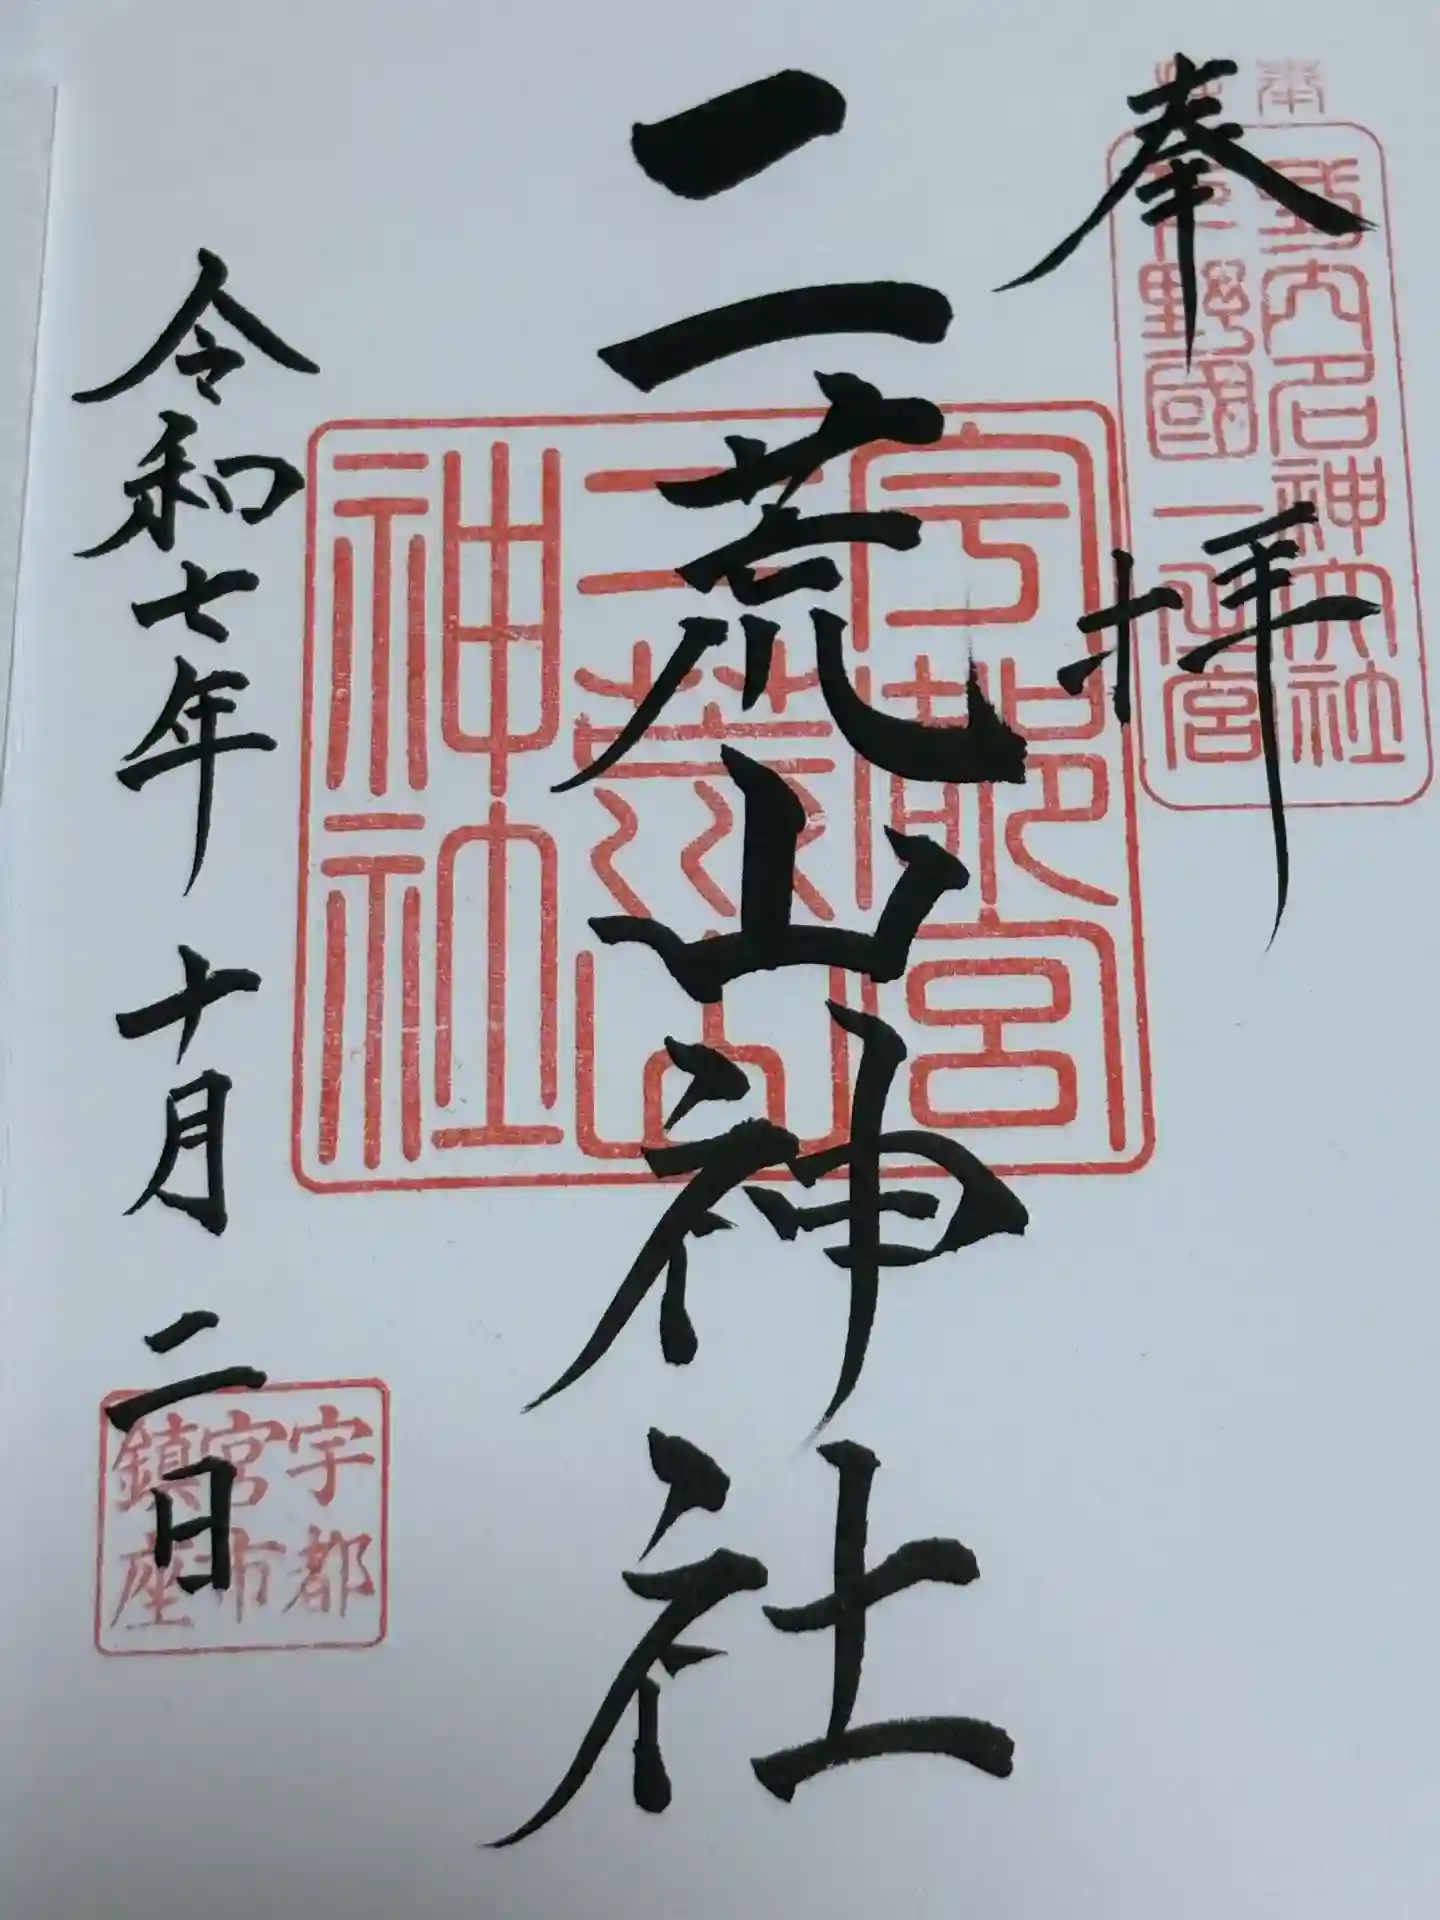 奉拝
式内名神大社
下野國一之宮
二荒山神社
宇都宮
二荒山
神社
令和七年十月二日
宇都
宮市
鎮座